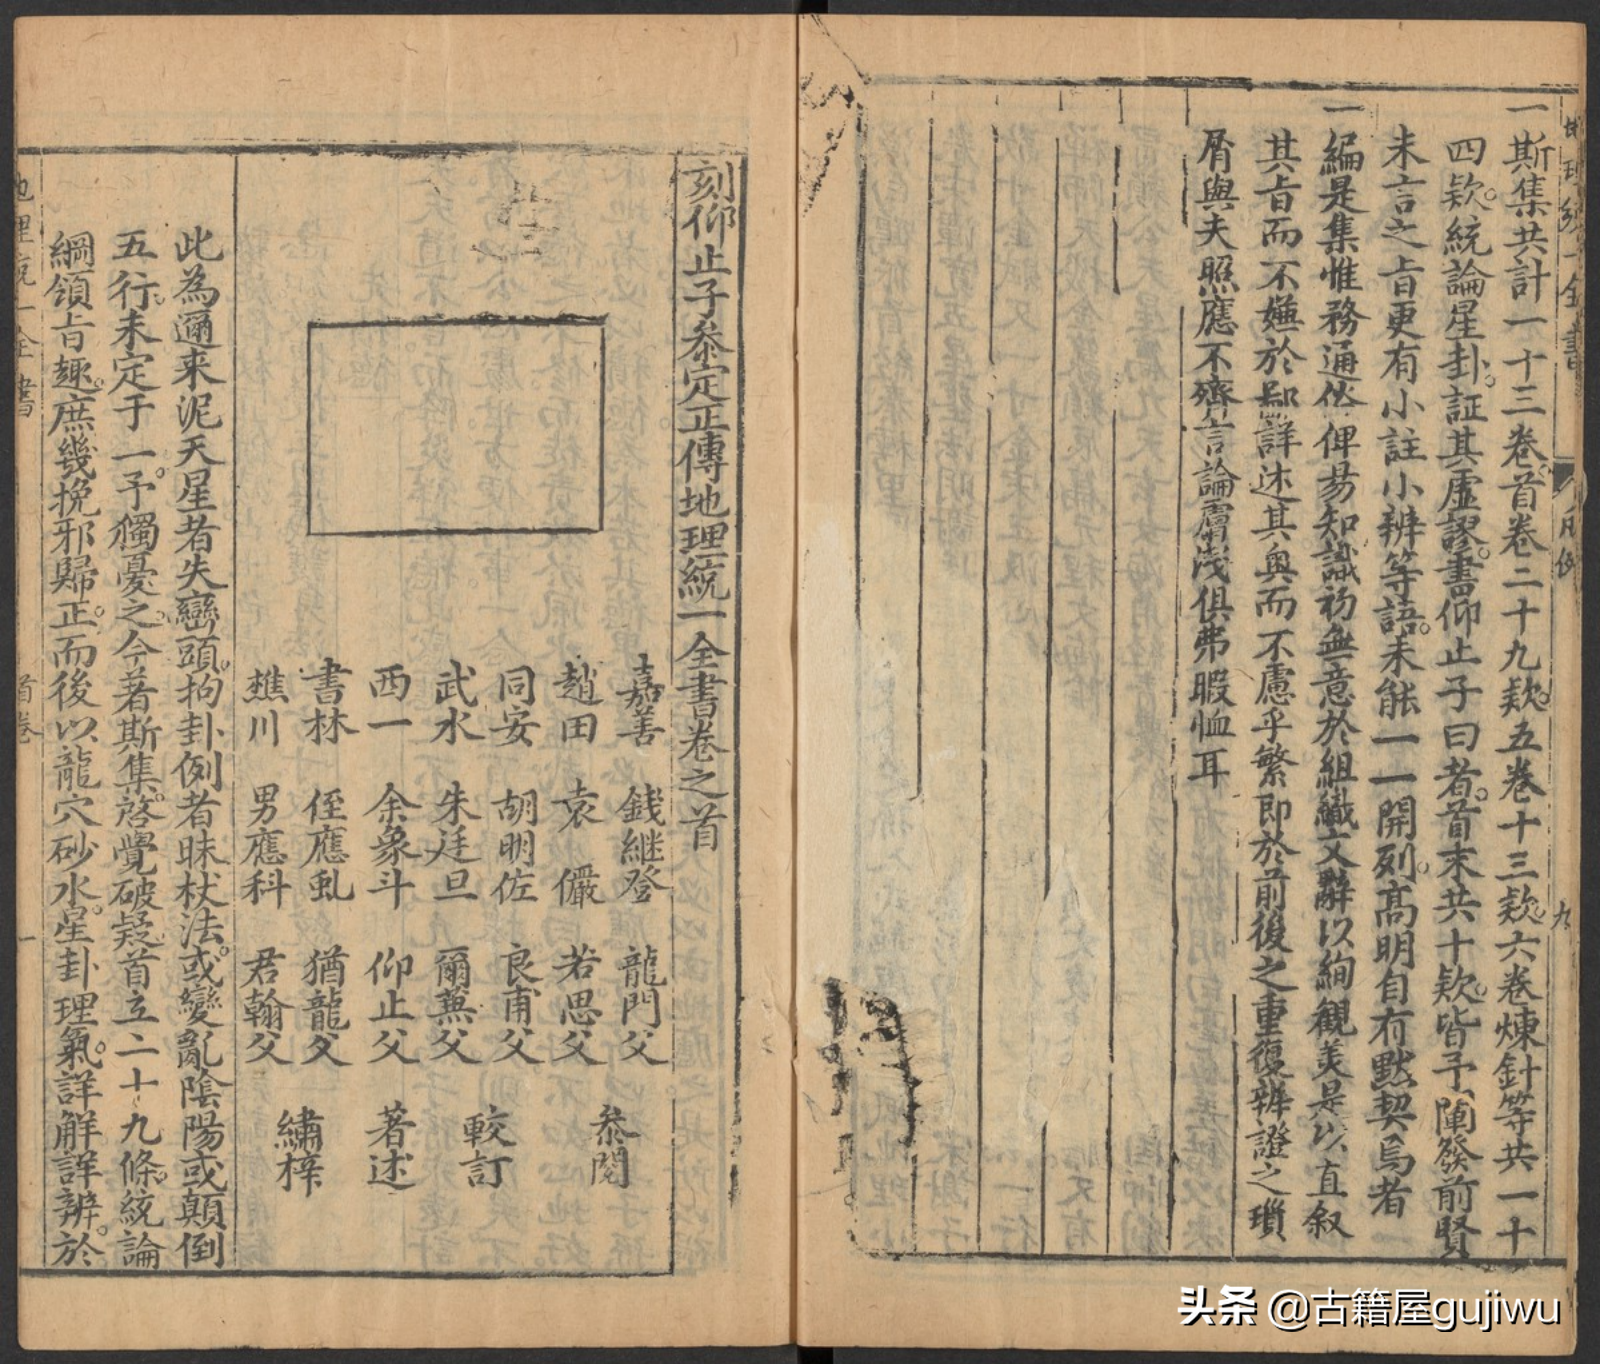 一斯集共計一十三卷首卷二十九欵五卷十三欵六卷煉針等共一十
四欵統論星卦証其虛謬書仰止子曰者首末共十欵皆予闡發前賢
未言之旨更有小註小辨等語未能一一開列高明自有默契焉者
一編是集惟務通俗俾易知識初無意於組織文辭以絢觀美是以直叙
其旨而不嫌於鄙詳述其奥而不慮乎繁即於前後之重復辨證之瑣
屑與夫照應不齊言論膚淺俱弗暇恤耳
凡例
九
刻仰止子叅定正傳地理統一全書卷之首
嘉善 錢継登 龍門父
趙田 袁儼 若思父 叅閱
同安 胡明佐 良甫父
武水 朱廷旦 爾蒹父 較訂
西一 余象斗 仰止父 著述
書林 侄應虬 猶龍父
樵川 男應科 君翰父 繡梓
此為邇来泥天星者失巒頭拘卦例者昧杖法或變亂陰陽或顛倒
五行未定于一予獨憂之今著斯集啓覺破疑首立二十九條統論
綱領旨趣庶幾挽邪歸正而後以龍穴砂水星卦理氣詳解詳辨於
地理統一全書
首卷
一
头条 @古籍屋gujiwu